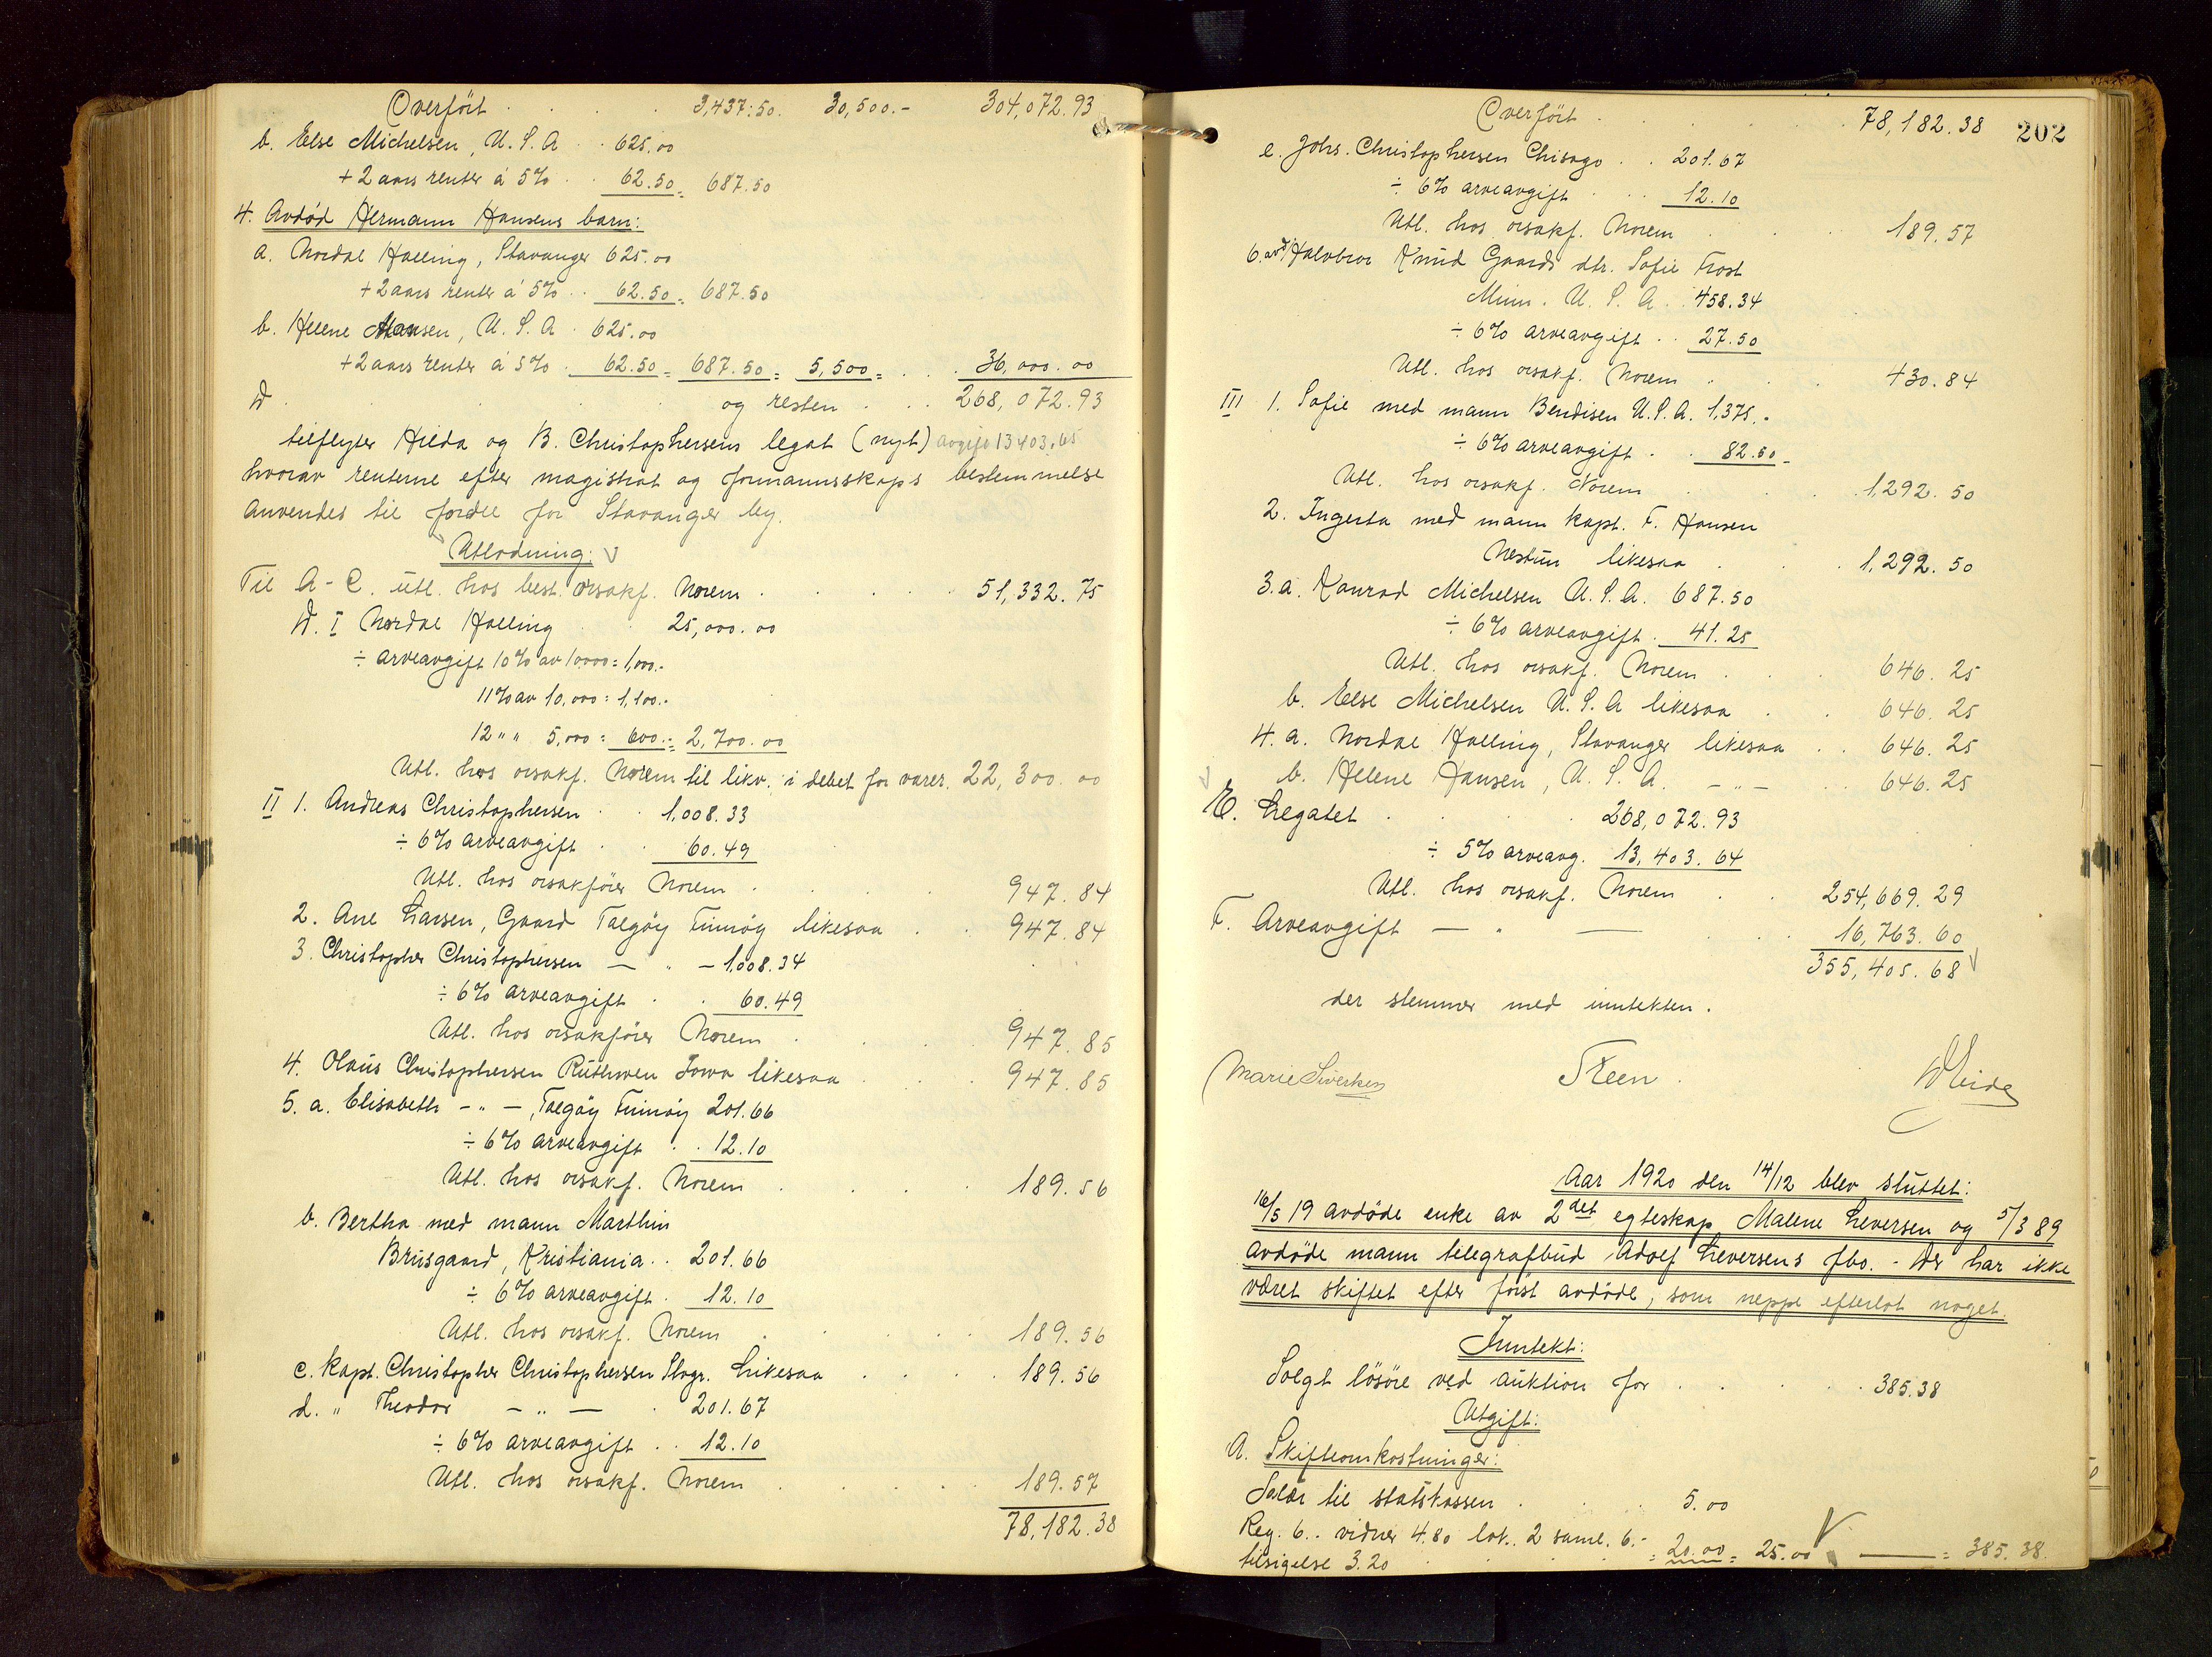 Overført . . . 3,437.50. 30,500.- 304,072.93
b. Else Michelsen, U.S.A . . 625.00
+ 2 aars renter á 5% . . 62.50 = 687.50
4. Avdød Hermann Hansens barn:
a. Nordal Halling, Stavanger 625.00
+ 2 aars renter á 5% . . 62.50 = 687.50
b. Helene Hansen, U.S.A . 625.00
+ 2 aars renter á 5% . 62.50 = 687.50 = 5,500 = . . 36,000.00
og resten . . . 268,072.93
tilflyter Hilda og B. Christophersens legat (nyt) avgift 13403.65
hvorav renterne efter magistrat og formannsskaps bestemmelse
anvendes til fordel for Stavanger by.
Utlodning:
Til A - C. utl. hos best. orsakf. Norem . . . 51,332.75
D. I Nordal Halling 25,000.00
÷ arveavgift 10% av 10000 = 1,000.-
11% av 10,000 = 1,100.-
12 " " 5,000 = 600.- = 2,700.00
Utl. hos orsakf. Norem til likv. i debet for varer. 22,300.00
II 1. Andreas Christophersen . . 1,008.33
÷ 6% arveavgift . . 60.49
Utl. hos orsakfører Norem . . . 947.84
2. Ane Larsen, Gaard Talgøy Finnøy likesaa . . 947.84
3. Christopher Christophersen — " — 1,008.34
÷ 6% arveavgift . . 60.49
Utl. hos orsakfører Norem . . . 947.85
4. Olaus Christophersen Ruthwen Jowa likesaa . . . 947.85
5. a. Elisabeth - " -, Talgøy Finnøy 201.66
÷ 6% arveavgift . . 12.10
Utl. hos orsakf. Norem . . . 189.56
b. Bertha med mann Marthin
Brusgaard, Kristiania . . 201.66
÷ 6% arveavgift . 12.10
Utl. hos orsakf. Norem . . . 189.56
c. Kapt. Christopher Christophersen Stvgr. Likesaa . . . 189.56
d. " Theodor - " — . 201.67
÷ 6% arveavgift . . 12.10
Utl. hos orsakf. Norem . . . 189.57
78,182.38
Overført . . . 78,182.38
202
e. Johs. Christophersen Chisago . . 201.67
÷ 6% arveavgift . . 12.10
Utl. hos orsakf. Norem . . . 189.57
6. avd. Halvbror Knud Gaards dtr. Sofie Frost
Minn. U.S.A . . 458.34
÷ 6% arveavgift . . 27.50
Utl. hos orsakf. Norem . . . 430.84
III 1. Sofie med mann Bendisen U.S.A. 1,375.-
÷ 6% arveavgift . . 82.50 -
Utl. hos orsakf. Norem . . . 1,292.50
2. Ingerta med mann kapt. F. Hansen
Nestun likesaa . . . 1,292.50
3. a. Konrad Michelsen U.S.A. 687.50
÷ 6% arveavgift . 41.25
Utl. hos orsakf. Norem . . . 646.25
b. Else Michelsen U.S.A likesaa . . 646.25
4. a. Nordal Halling, Stavanger likesaa . . 646.25
b. Helene Hansen, U.S.A. - " - . . 646.25
E. Legatet . . . 268,072.93
÷ 5% arveavg. 13,403.64
Utl. hos orsakf. Norem . . 254,669.29
F. Arveavgift — " — . . 16,763.60
355,405.68
der stemmer med inntekten.
Marie Siverksen Steen
Aar 1920 den 14/12 blev sluttet:
16/5 19 avdøde enke av 2det egteskap Malene Sieversen og 5/3 89
avdøde mann telegrafbud Adolf Sieversens fbo. - Der har ikke
været skiftet efter først avdøde, som neppe efterlot noget.
Inntekt:
Solgt løsøre ved auktion for . . . 385.38
Utgift:
A. Skifteomkostninger:
Salær til statskassen . . . 5.00
Reg. 6.. vidner 4.80 lok.. 2 saml. 6.-
tilsigelse 3.20 . . . = 20.00 = 25.00 —— = 385.38